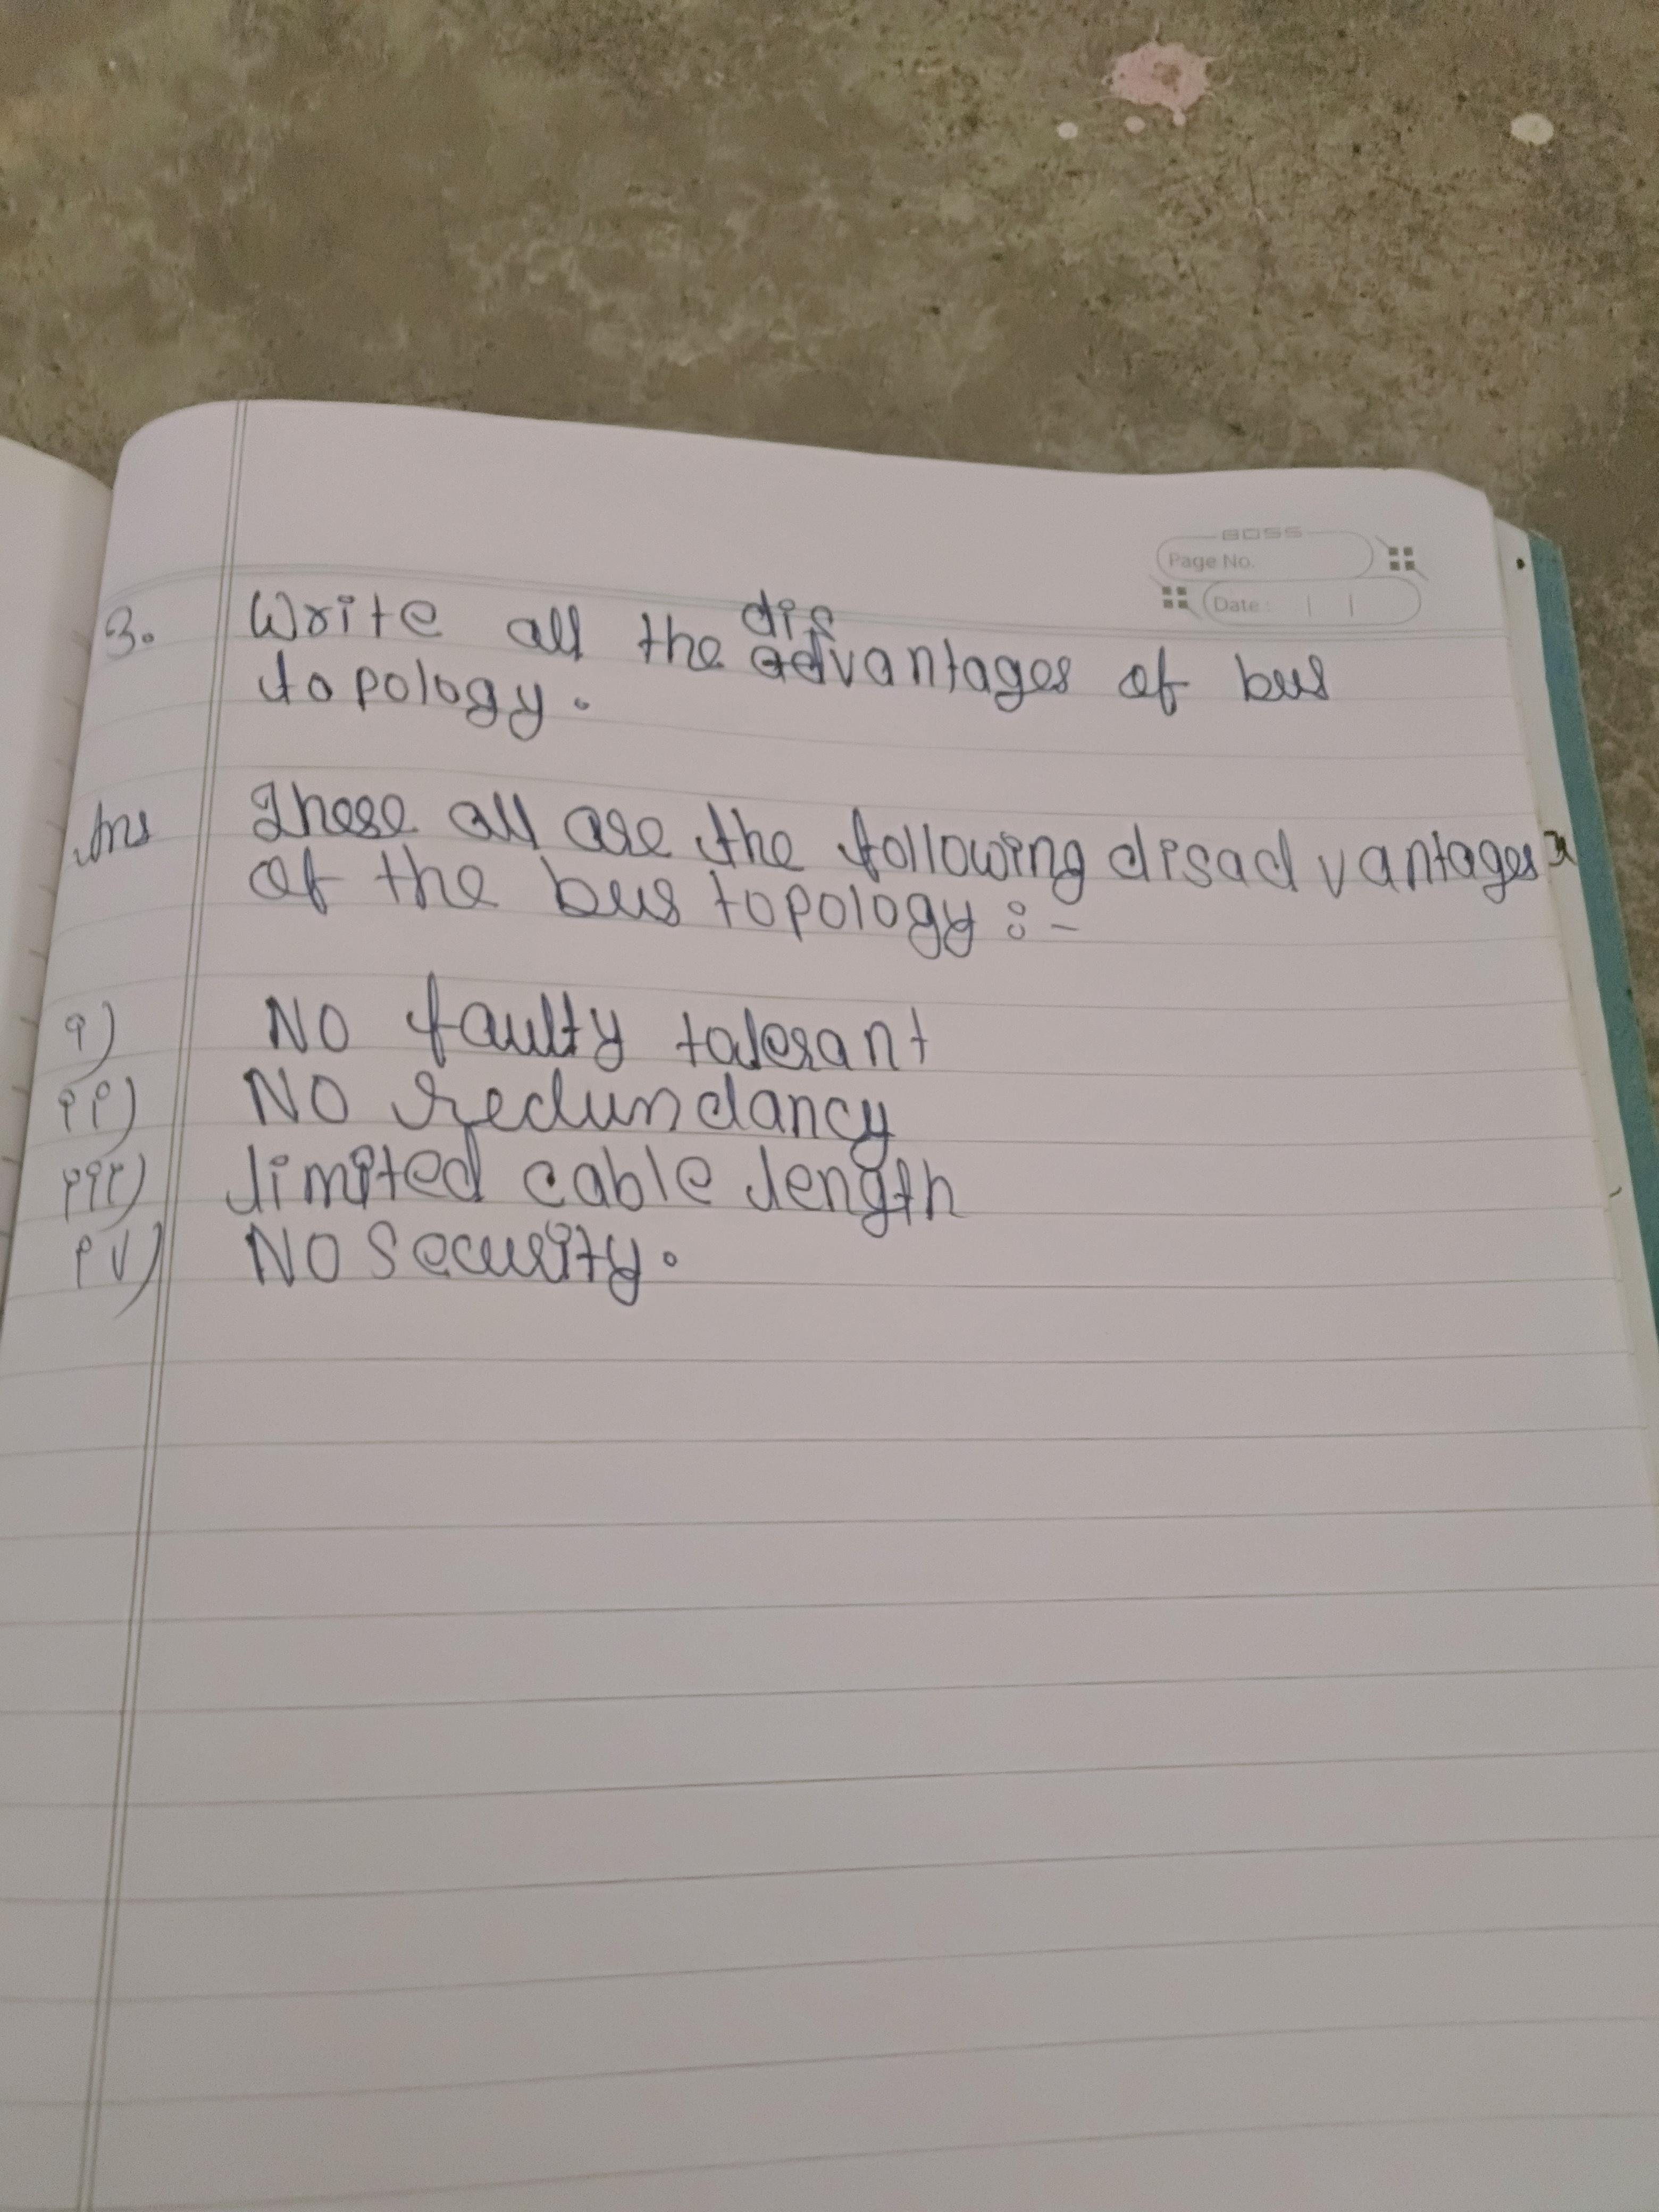 BOSS
Page No.
Date :
3. Write all the disadvantages of bus
topology.
Ans These all are the following disadvantages
of the bus topology :-
i) NO faulty tolerant
ii) NO redundancy
iii) limited cable length
iv) NO Security.